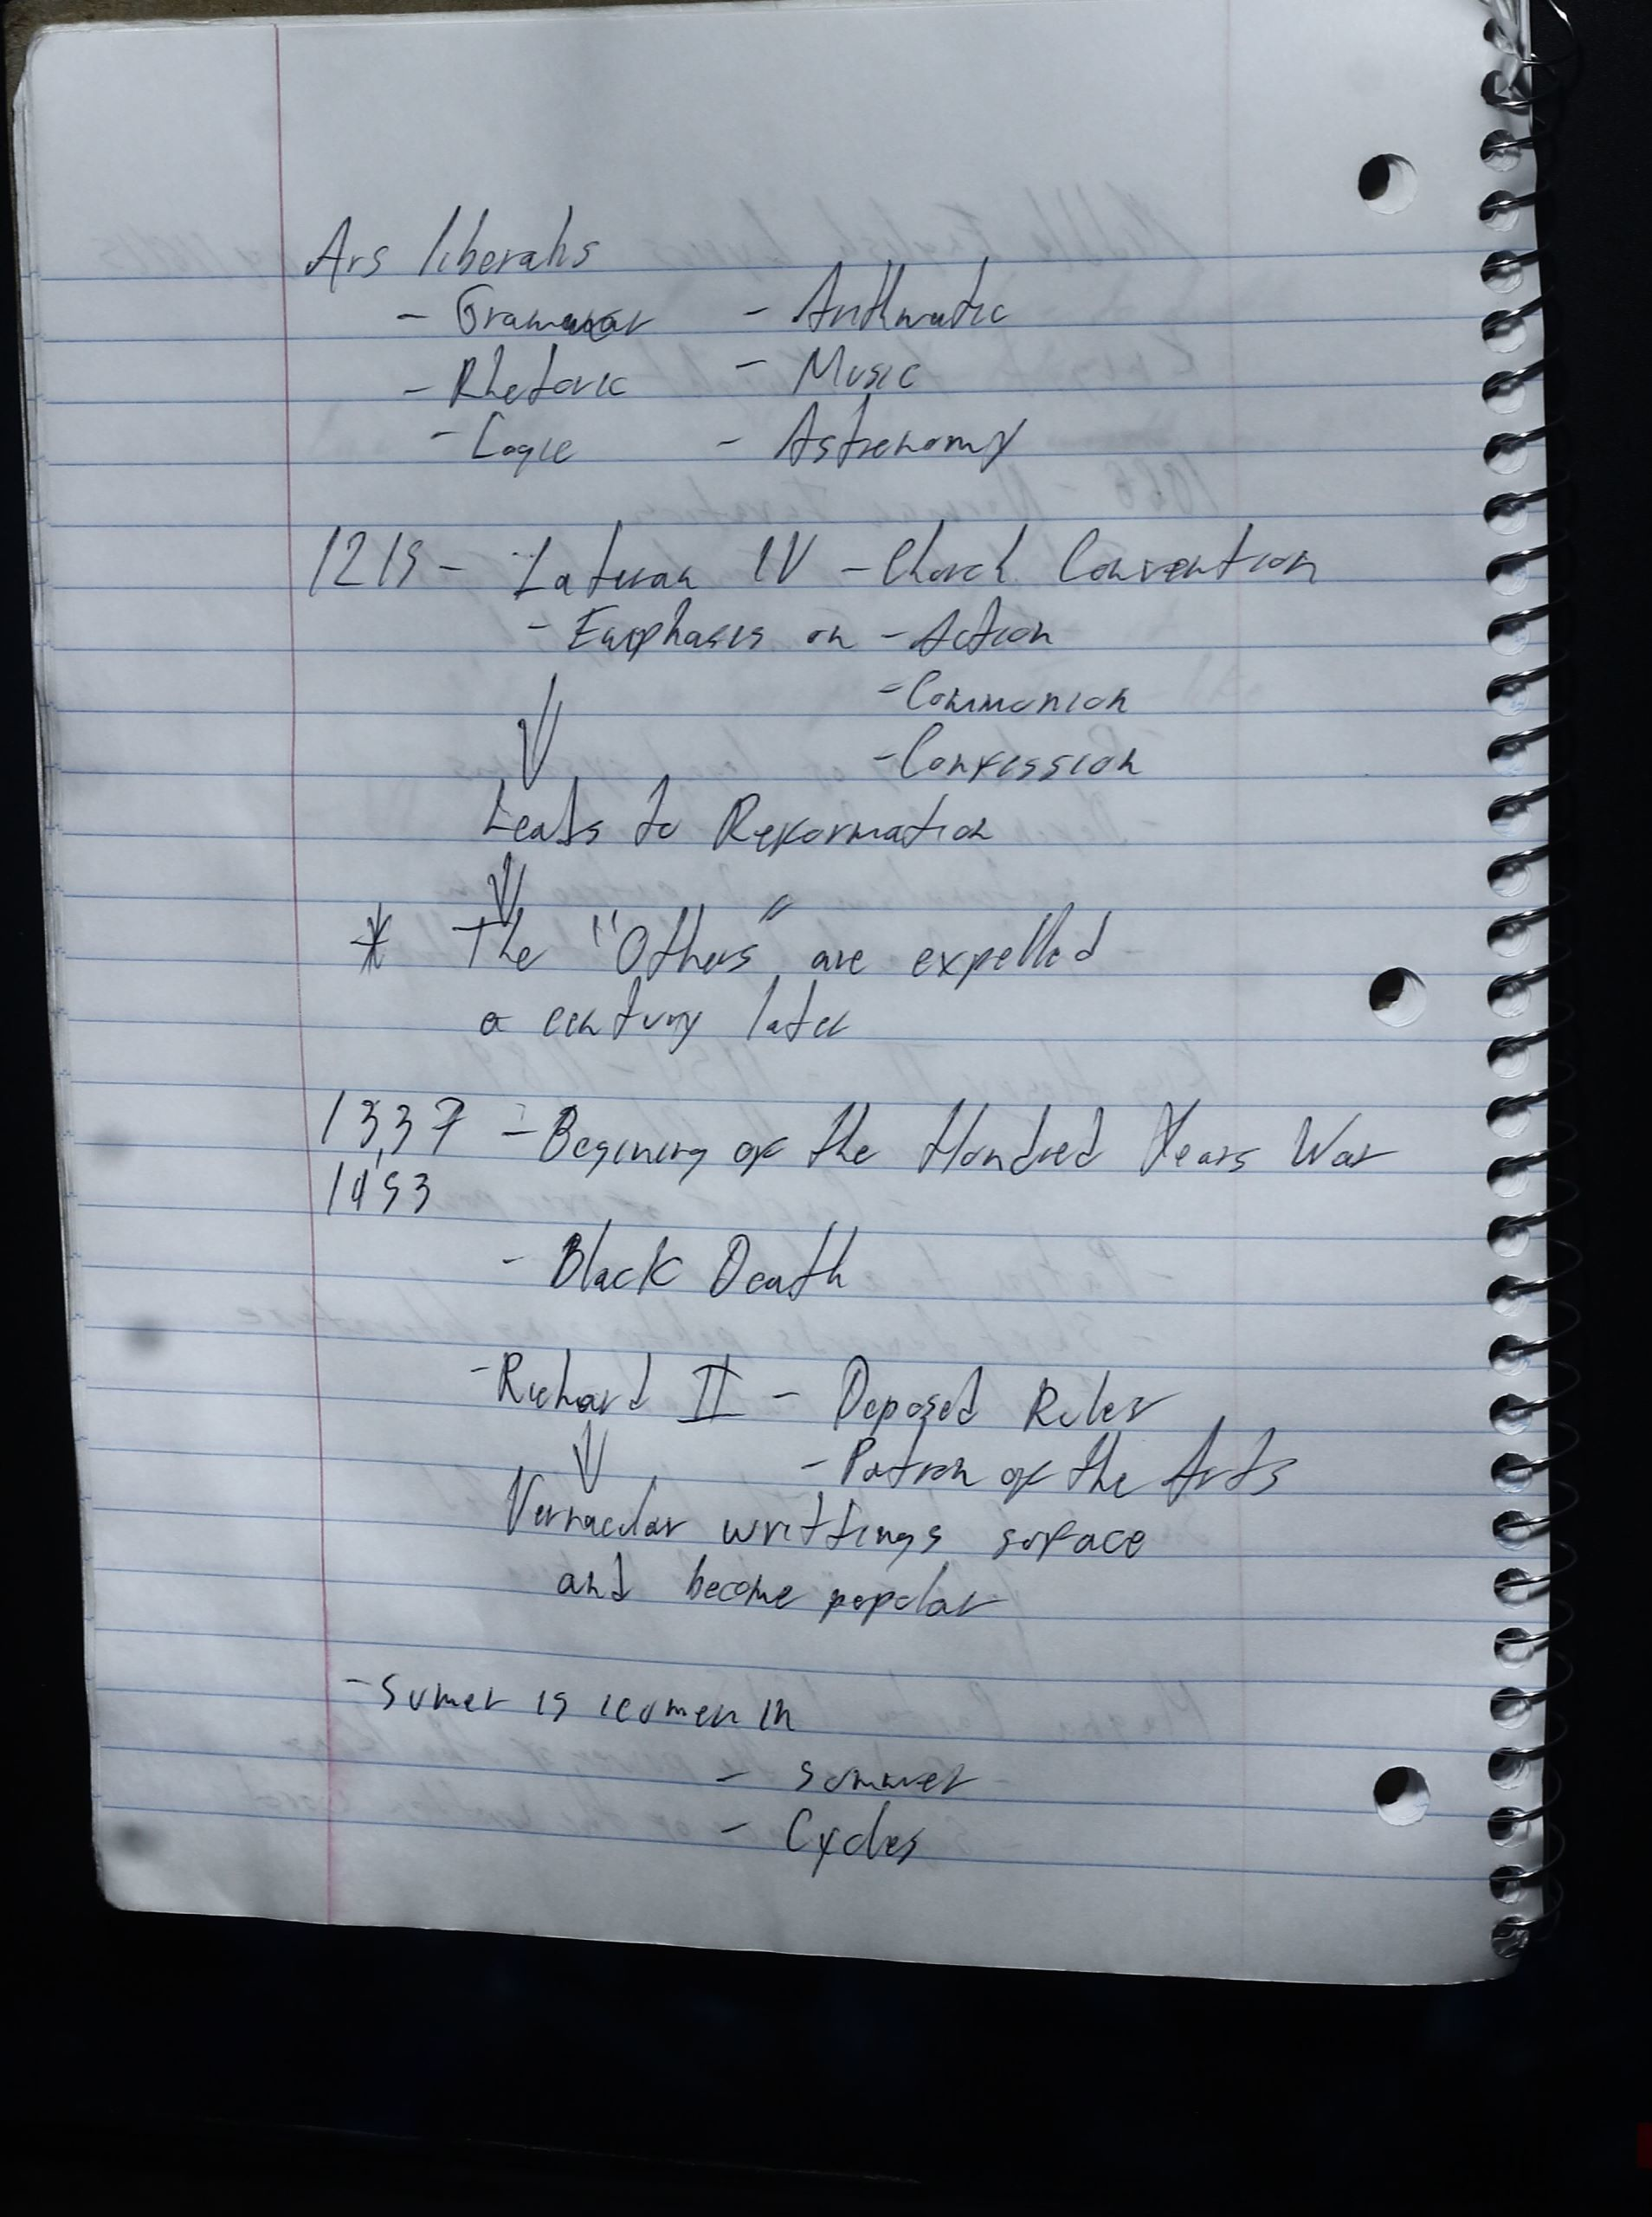 Ars liberalis
- Grammar - Arithmatic
- Rhetoric - Music
- Logic - Astronomy
1215 - Lateran IV - Church Convention
- Emphasis on - Action
- Communion
- Confession
Leads to Reformation
* The "Others" are expelled
a century later
1337 - Begining of the Hundred Years War
1453
- Black Death
- Richard II - Deposed Ruler
- Patron of the Arts
Vernacular writtings surface
and become popular
- Sumer is icumen in
- Summer
- Cycles